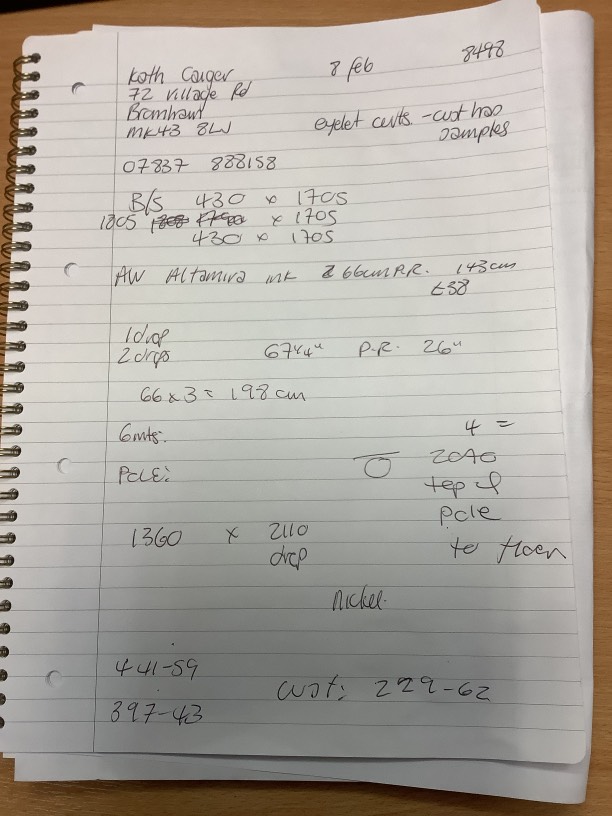 Kath Couger 8 feb 8498
72 Village Rd
Bromham
MK43 8LW eyelet curts. - cust has samples
07837 888158
B/S 430 x 1705
1805 x 1705
430 x 1705
AW Altamira ink 66cm P.R. 143cm
£38
1 drop
2 drops 67 44" P.R. 26"
66 x 3 = 198 cm
6mts.
POLE: 4 =
2040
top of
pole
to floor
1360 x 2110
drop
Nickel.
441-59
397-43 cust: 229-62